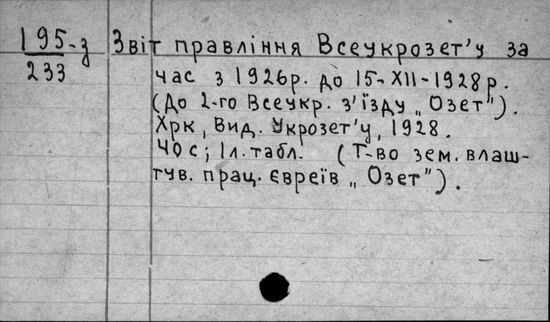 195-з
233
Звіт правління Всеукрозет'у за
час з 1926р. до 15-XII-1928р.
(До 2-го Всеукр. з'їзду „Озет").
Хрк, Вид. Укрозет'у, 1928.
40 с; 1л. табл. (Т-во зем. влаш-
тув. прац. євреїв „Озет").